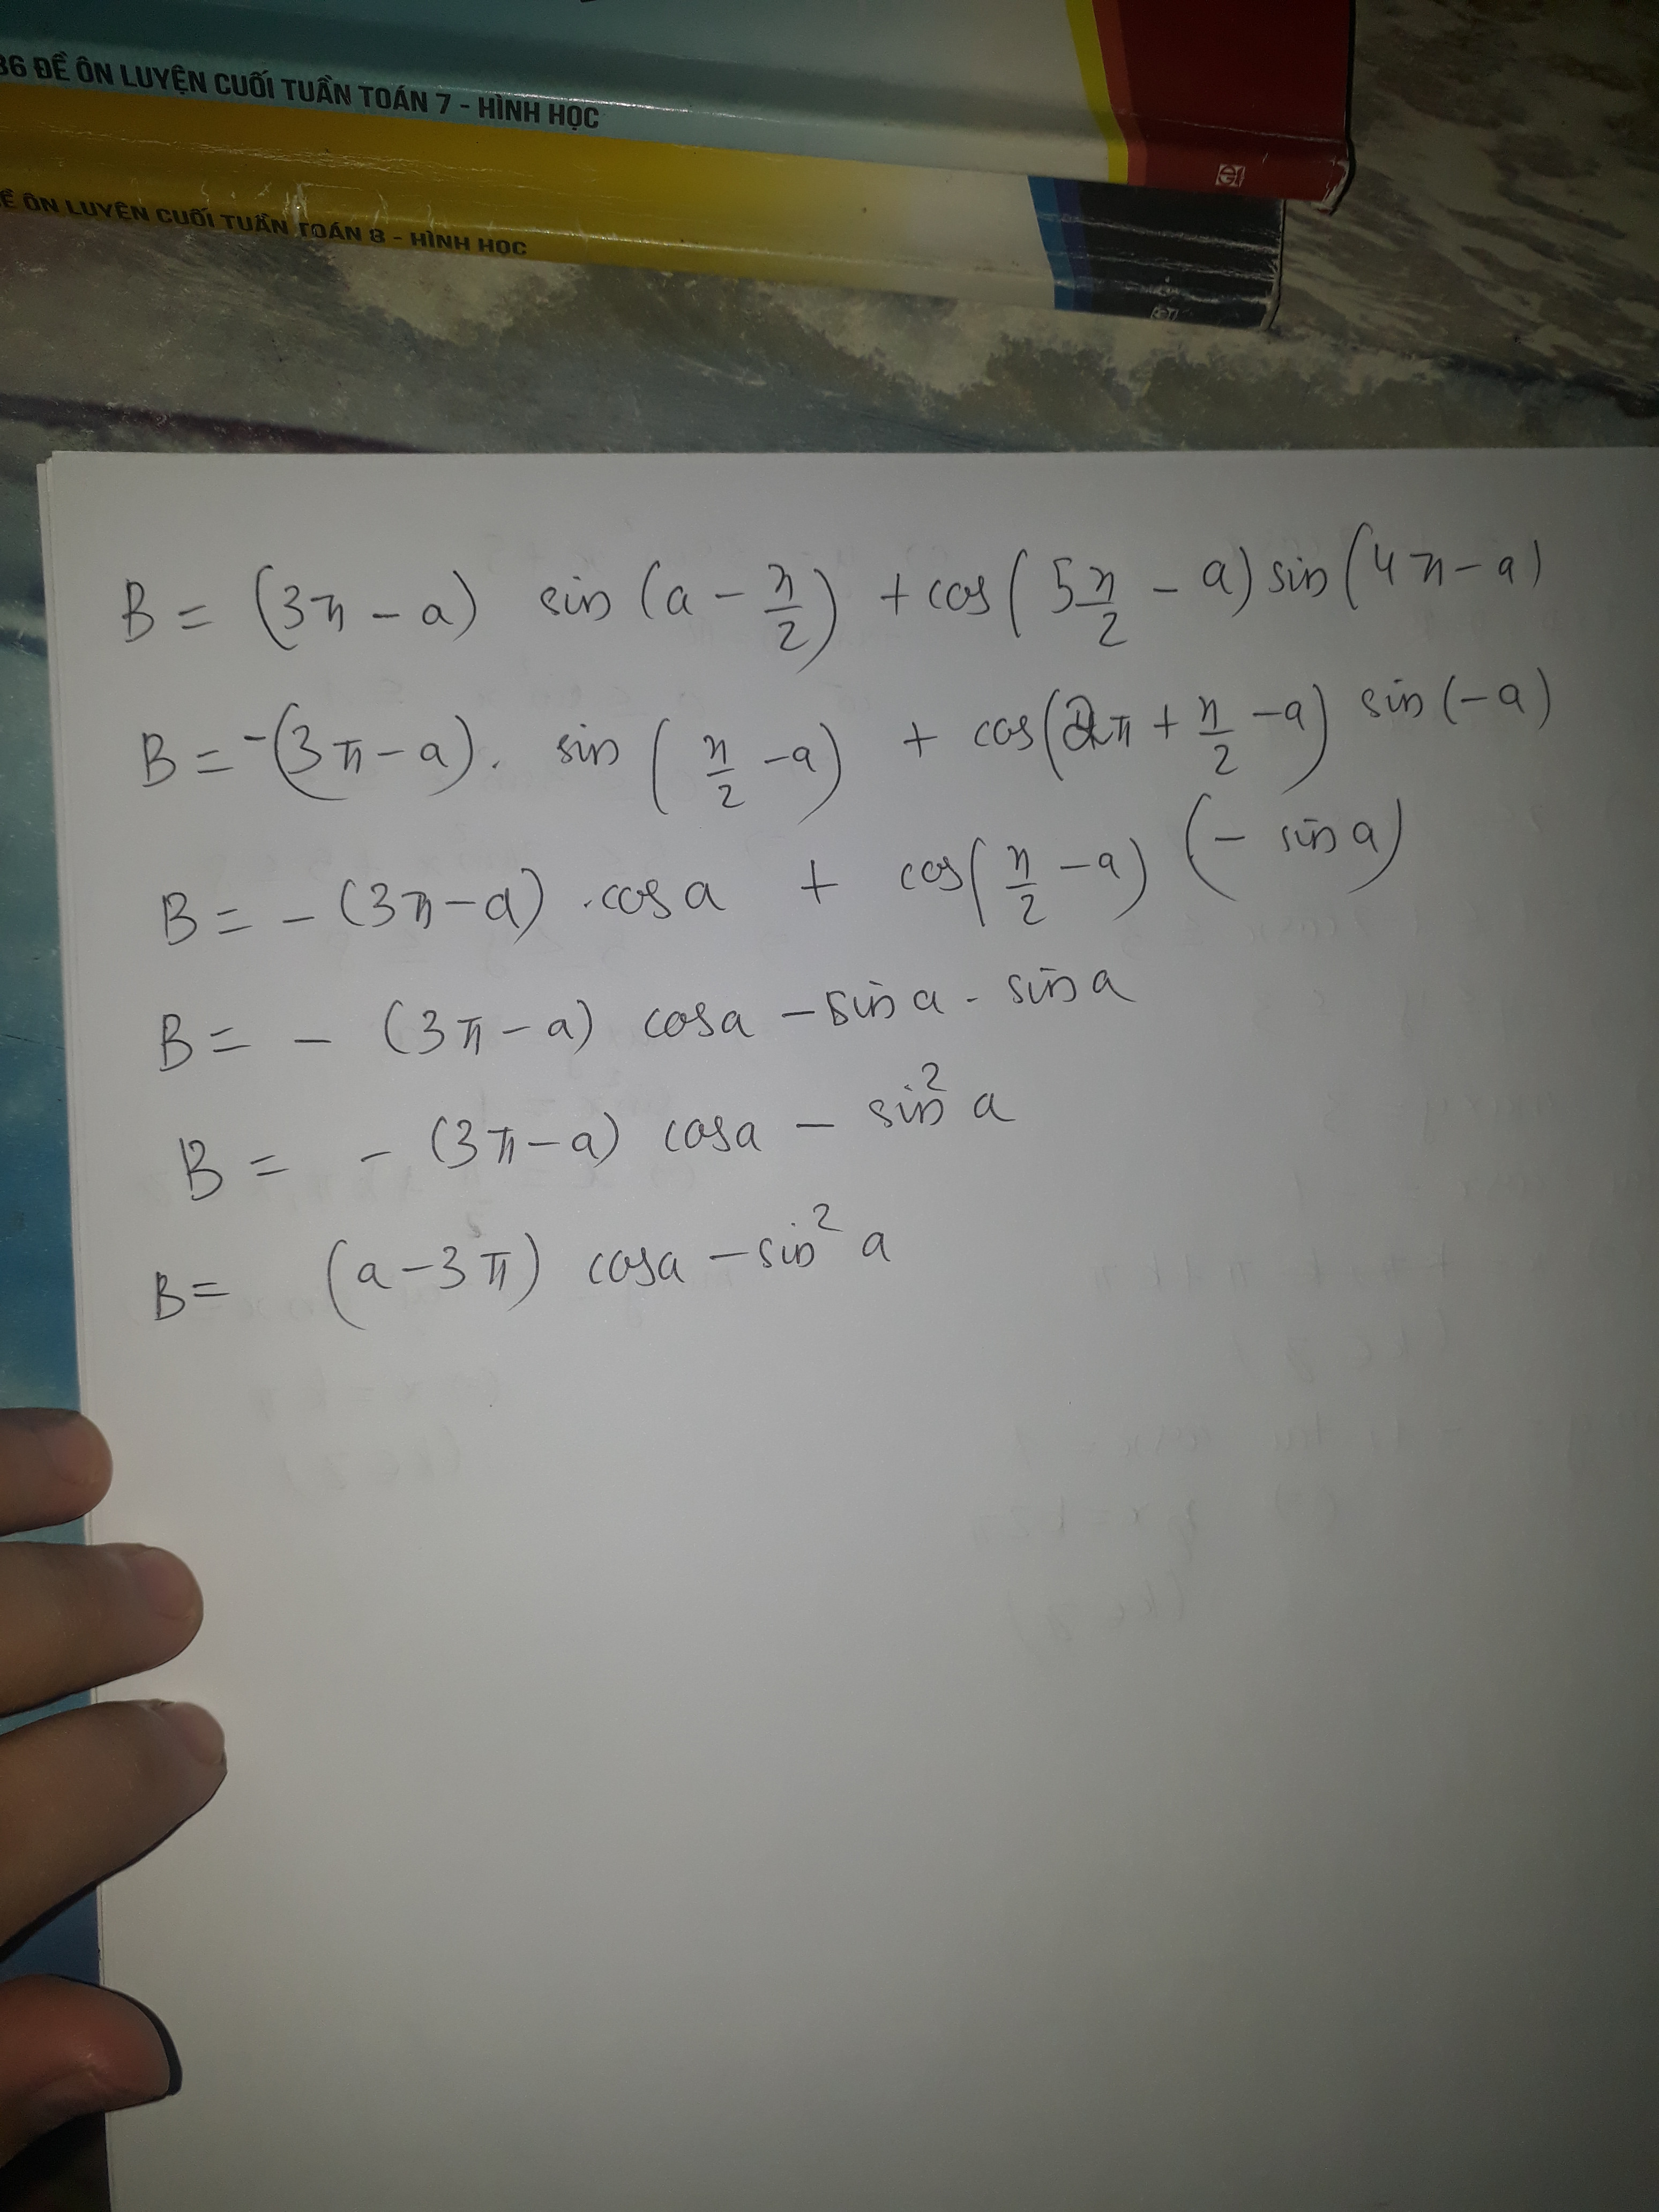 36 ĐỀ ÔN LUYỆN CUỐI TUẦN TOÁN 7 - HÌNH HỌC
ĐỀ ÔN LUYỆN CUỐI TUẦN TOÁN 8 - HÌNH HỌC
B = (3π - a) sin(a - π/2) + cos(5π/2 - a) sin(4π - a)
B = -(3π - a). sin(π/2 - a) + cos(2π + π/2 - a) sin(-a)
B = - (3π - a) . cos a + cos(π/2 - a) (- sin a)
B = - (3π - a) cos a - sin a . sin a
B = - (3π - a) cos a - sin² a
B = (a - 3π) cos a - sin² a